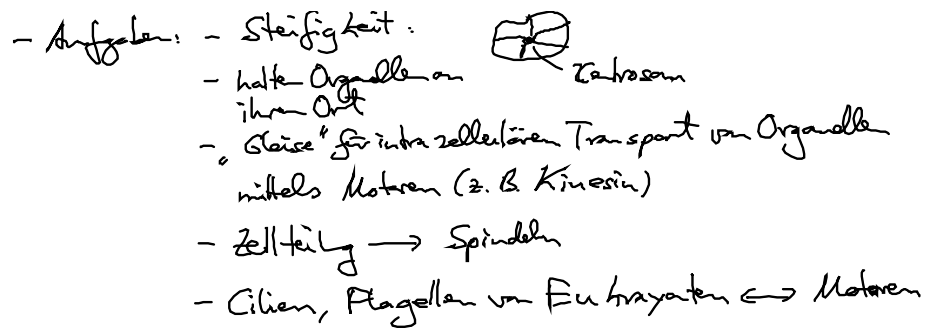 - Aufgaben: - Steifigkeit:
Zentrosom
- halten Organellen an
ihrem Ort
- "Gleise" für intrazellulären Transport von Organellen
mittels Motoren (z. B. Kinesin)
- Zellteilung → Spindeln
- Cilien, Flagellen von Eukaryonten ↔ Motoren